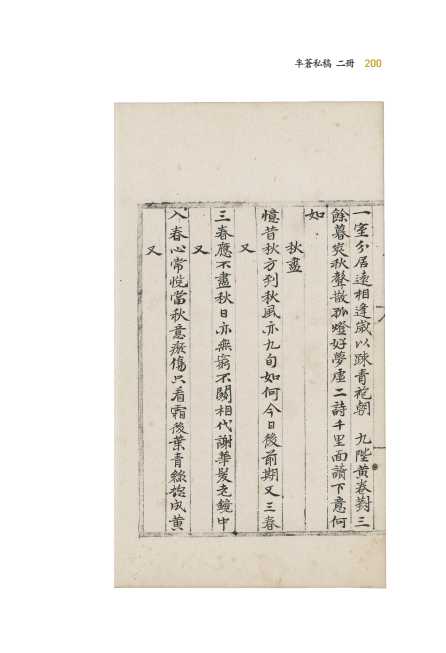 半蒼私稿 二冊 200
一室分居遠相逢歲以疎青袍朝 九陛黃卷對三
餘暮突秋聲撤孤燈好夢虛二詩千里面讀下意何
如
秋盡
憶昔秋方到秋風亦九旬如何今日後前期又三春
又
三春應不盡秋日亦無窮不關相代謝華髮老鏡中
又
入春心常悅當秋意癈傷只看霜後葉青絲旋成黃
又